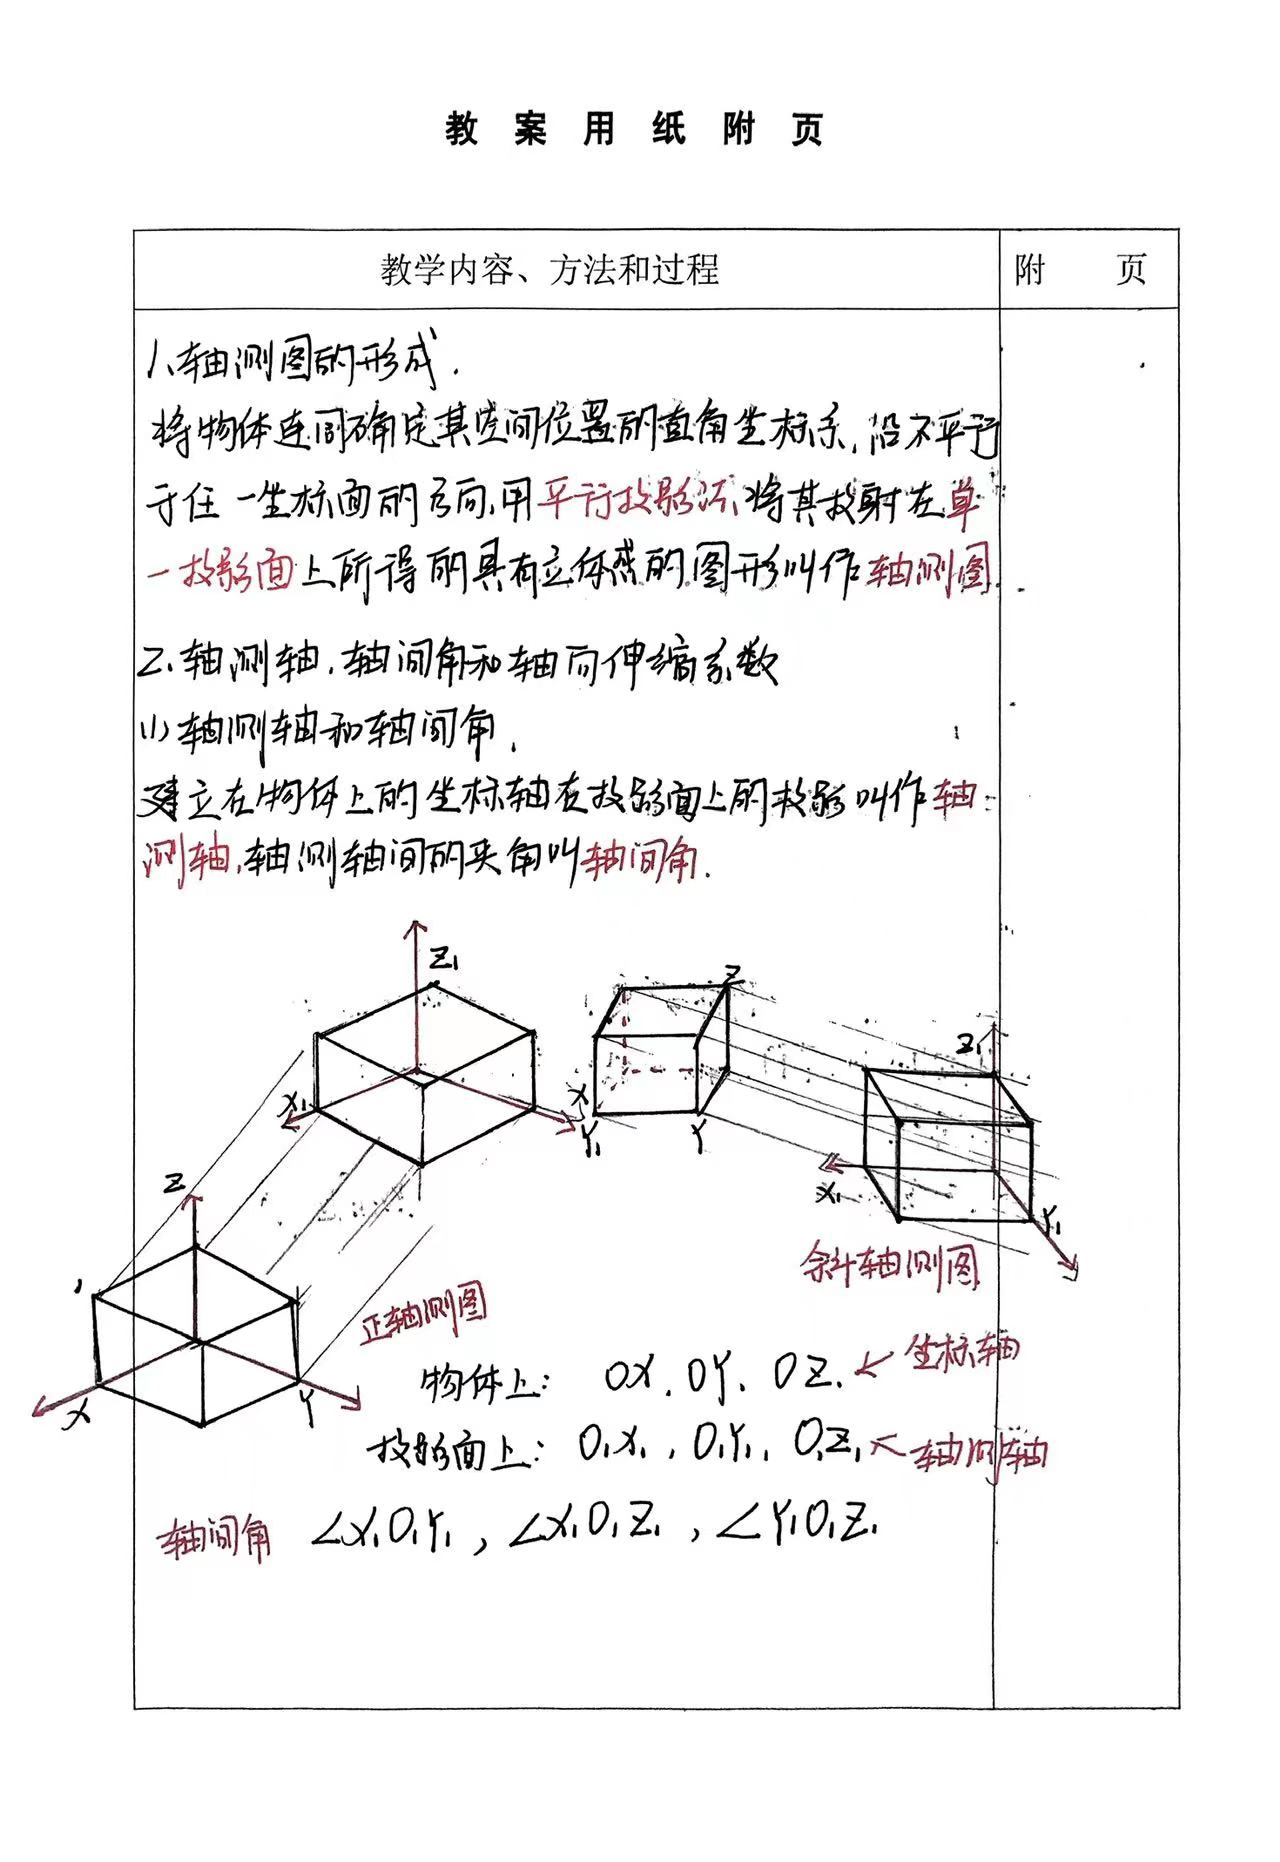 教案用纸附页
教学内容、方法和过程
附 页
1、轴测图的形成.
将物体连同确定其空间位置的直角坐标系,沿不平行
于任一坐标面的方向,用平行投影法,将其投射在单
一投影面上所得的具有立体感的图形叫作轴测图.
2、轴测轴,轴间角和轴向伸缩系数
(1)轴测轴和轴间角.
建立在物体上的坐标轴在投影面上的投影叫作轴
测轴,轴测轴间的夹角叫轴间角.
Z₁
Z
Z₁
X₁
X
Y₁
Y
X₁
Y₁
Z
斜轴测图
正轴测图
X
Y
物体上: OX, OY, OZ. ← 坐标轴
投影面上: O₁X₁, O₁Y₁, O₁Z₁ ← 轴测轴
轴间角 ∠X₁O₁Y₁, ∠X₁O₁Z₁, ∠Y₁O₁Z₁